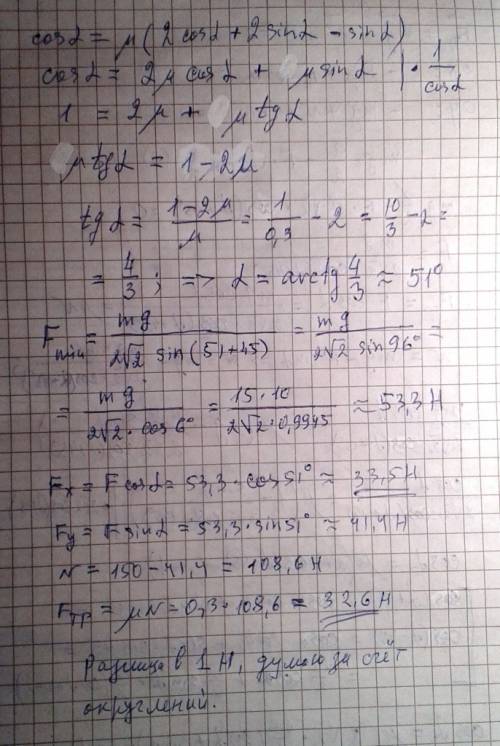 cosα = μ(2cosα + 2sinα - sinα)
cosα = 2μ cosα + μ sinα | · 1/cosα
1 = 2μ + μ tgα
μ tgα = 1 - 2μ
tgα = (1-2μ)/μ = 1/0,3 - 2 = 10/3 - 2 =
= 4/3 ; => α = arctg 4/3 ≈ 51°
Fmin = mg/(2√2 sin(51+45)) = mg/(2√2 sin96°) =
= mg/(2√2 · cos6°) = 15·10/(2√2·0,9945) ≈ 53,3 Н
Fx = Fcosα = 53,3·cos51° ≈ 33,5Н
Fy = Fsinα = 53,3·sin51° ≈ 41,4Н
N = 150 - 41,4 = 108,6Н
Fтр = μN = 0,3·108,6 = 32,6Н
Разница в 1Н, думаю за счёт
округлений.